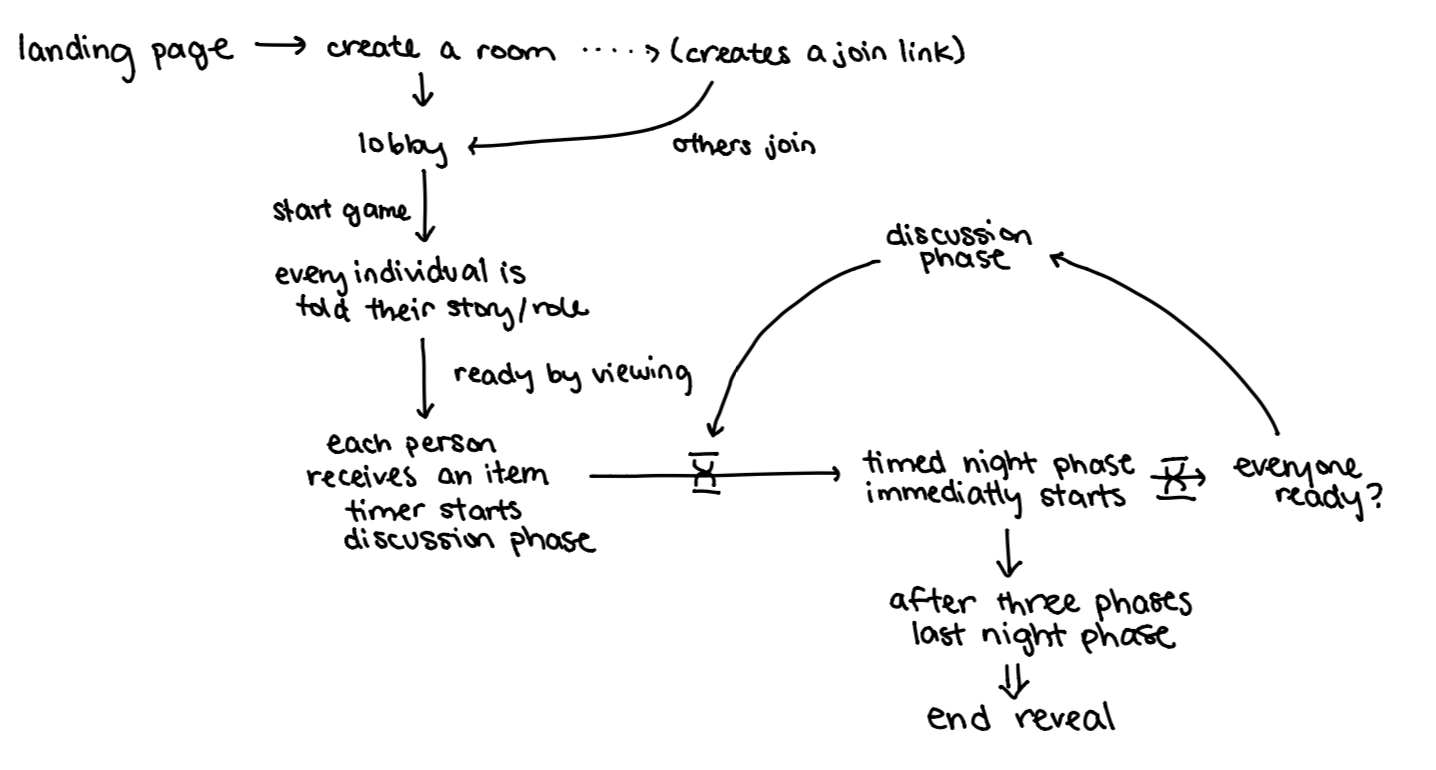 landing page → create a room ····> (creates a join link)
lobby
others join
start game
every individual is
told their story/role
ready by viewing
each person
receives an item
timer starts
discussion phase
discussion
phase
timed night phase
immediatly starts
everyone
ready?
after three phases
last night phase
end reveal